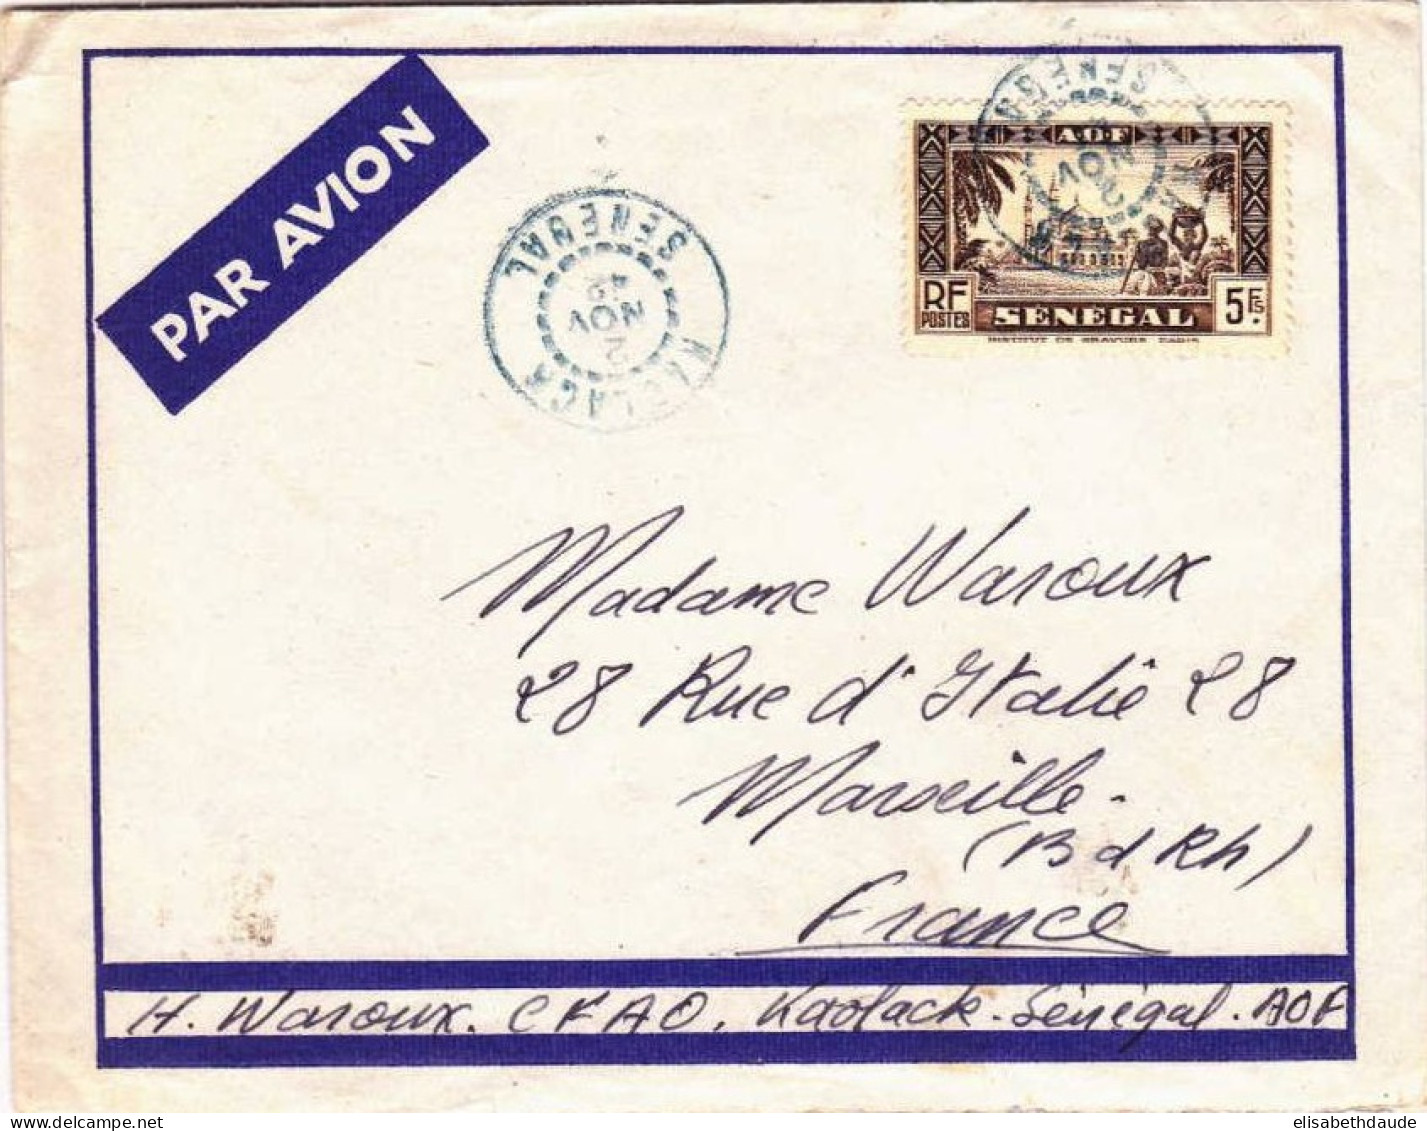 PAR AVION
SENEGAL
KAOLACK
2
NOV
SENEGAL
2
NOV
A·O·F
RF
POSTES
SÉNÉGAL
5Fs.
INSTITUT DE GRAVURE. PARIS
Madame Waroux
28 Rue d'Italie 28
Marseille.
(B d Rh)
France
H. Waroux. CFAO. Kaolack. Sénégal. AOF
elisabethdaude